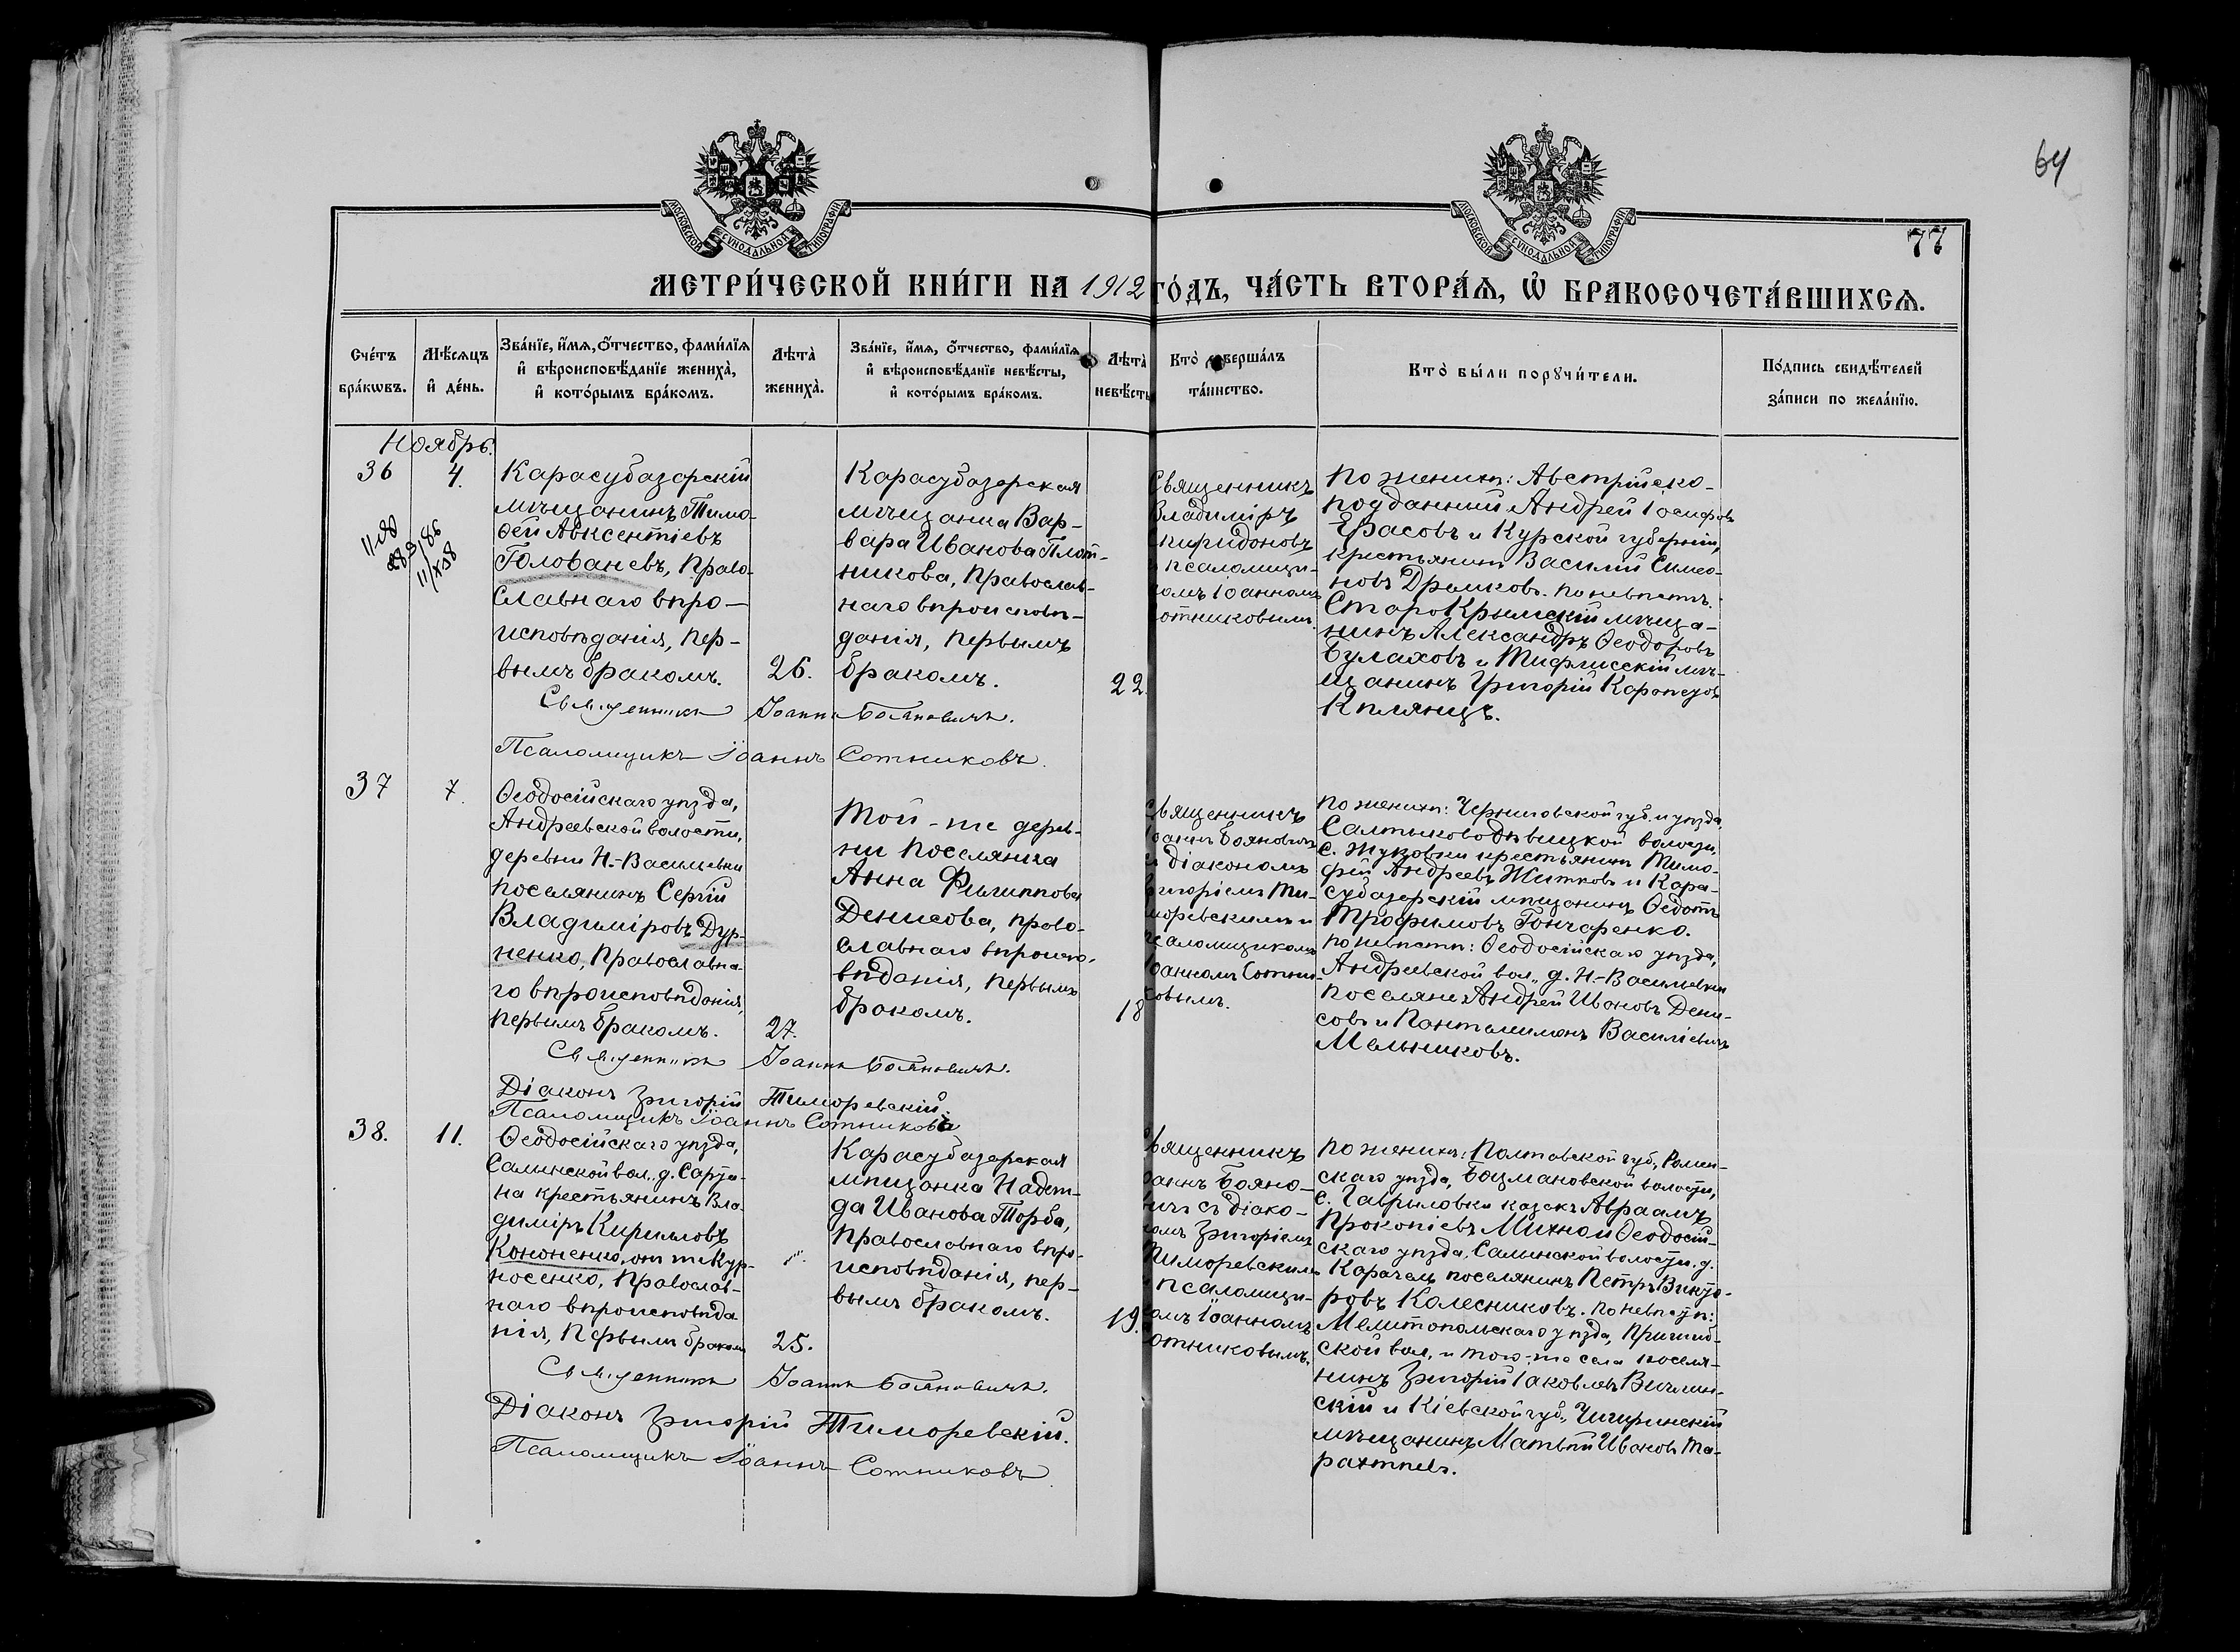 64
77
МОСКОВСКОЙ СУНОДАЛЬНОЙ ТИПОГРАФІИ
МОСКОВСКОЙ СУНОДАЛЬНОЙ ТИПОГРАФІИ
МЕТРИ́ЧЕСКОЙ КНИ́ГИ НА 1912 ГО́ДЪ, ЧА́СТЬ ВТОРА́Я, Ѡ҆ БРАКОСОЧЕТА́ВШИХСѦ.
Сче́тъ
бра́кѡвъ.
Мѣ́сяцъ
и҆ де́нь.
Зва́нїе, и҆́мѧ, ѻ҆́тчество, фамил́їѧ
и҆ вѣроисповѣ́данїе жениха̀,
и҆ кото́рымъ бра́комъ.
Лѣта̀
жениха̀.
Зва́нїе, и҆́мѧ, ѻ҆́тчество, фамил́їѧ
и҆ вѣроисповѣ́данїе невѣ́сты,
и҆ кото́рымъ бра́комъ.
Лѣта̀
невѣ́сты
Кто̀ соверша́лъ
та́инство.
Кто̀ бы́ли порꙋчи́тели.
По́дпись свидѣ́телей
за́писи по жела́нїю.
Ноябрь.
36
4.
Карасубазарскій
мѣщанинъ Тимо-
ѳей Авксентіевъ
Голованевъ, право-
славнаго вѣро-
исповѣданія, пер-
вымъ бракомъ.
26.
Карасубазарская
мѣщанка Вар-
вара Иванова Плот-
никова, православ-
наго вѣроисповѣ-
данія, первымъ
бракомъ.
22.
Священникъ
Владиміръ
Спиридоновъ
псаломщи-
комъ Іоанномъ
Сотниковымъ.
По женихѣ: Австрійско-
подданный Андрей Іосифовъ
Ерасовъ и Курской губерніи,
крестьянинъ Василій Симео-
новъ Дрыжковъ. По невѣстѣ:
СтароКрымскій мѣща-
нинъ Александръ Ѳеодоровъ
Булаховъ и Тифлисскій мѣ-
щанинъ Григорій Карапетовъ
Священникъ Іоаннъ Бояновичъ.
Псаломщикъ Іоаннъ Сотниковъ.
37
7.
Ѳеодосійскаго уѣзда,
Андреевской волости,
деревни Н.-Васильевки
поселянинъ Сергій
Владиміровъ Дур-
ненко, православна-
го вѣроисповѣданія,
первымъ бракомъ.
27.
Той-же дерев-
ни поселянка
Анна Филиппова
Денисова, право-
славнаго вѣроиспо-
вѣданія, первымъ
бракомъ.
18
Священникъ
Іоаннъ Бояновичъ
съ діакономъ
Григоріемъ Ти-
моревскимъ и
псаломщикомъ
Іоанномъ Сотни-
ковымъ.
По женихѣ: Черниговской губ. и уѣзда,
СалтыковоДѣвицкой волости,
с. Жуковки крестьянинъ Тимо-
фей Андреевъ Житковъ и Кара-
субазарскій мѣщанинъ Ѳедотъ
Трофимовъ Гончаренко.
По невѣстѣ: Ѳеодосійскаго уѣзда,
Андреевской вол., д. Н.-Васильевки
поселяне Андрей Ивановъ Дени-
совъ и Пантелимонъ Василіевичъ
Мельниковъ.
Священникъ Іоаннъ Бояновичъ.
Діаконъ Григорій Тиморевскій.
Псаломщикъ Іоаннъ Сотниковъ
38.
11.
Ѳеодосійскаго уѣзда,
Салинской вол., д. Сарȣа-
на крестьянинъ Вла-
диміръ Кирилловъ
Кононенко, онъ же Кур-
носенко, православ-
наго вѣроисповѣда
нія, первымъ бракомъ
25.
Карасубазарская
мѣщанка Надеж-
да Иванова Торба,
православнаго вѣро-
исповѣданія, пер-
вымъ бракомъ.
19.
Священникъ
Іоаннъ Бояно-
вичъ съ діако-
номъ Григоріемъ
Тиморевскимъ
и псаломщи-
комъ Іоанномъ
Сотниковымъ.
По женихѣ: Полтавской губ., Ромен-
скаго уѣзда, Бацмановской волости,
с. Гавриловки казакъ Авраамъ
Прокопіевъ Михно и Ѳеодосій-
скаго уѣзда, Салинской волости, д.
Карачель поселянинъ Петръ Викто-
ровъ Колесниковъ. По невѣстѣ:
Мелитопольскаго уѣзда, Пришиб-
ской вол. и того-же села поселя-
нинъ Григорій Іаковлевъ
и Кіевской губ., Чигиринскій
мѣщанинъ Матвѣй Ивановъ
Священникъ Іоаннъ Бояновичъ.
Діаконъ Григорій Тиморевскій.
Псаломщикъ Іоаннъ Сотниковъ.